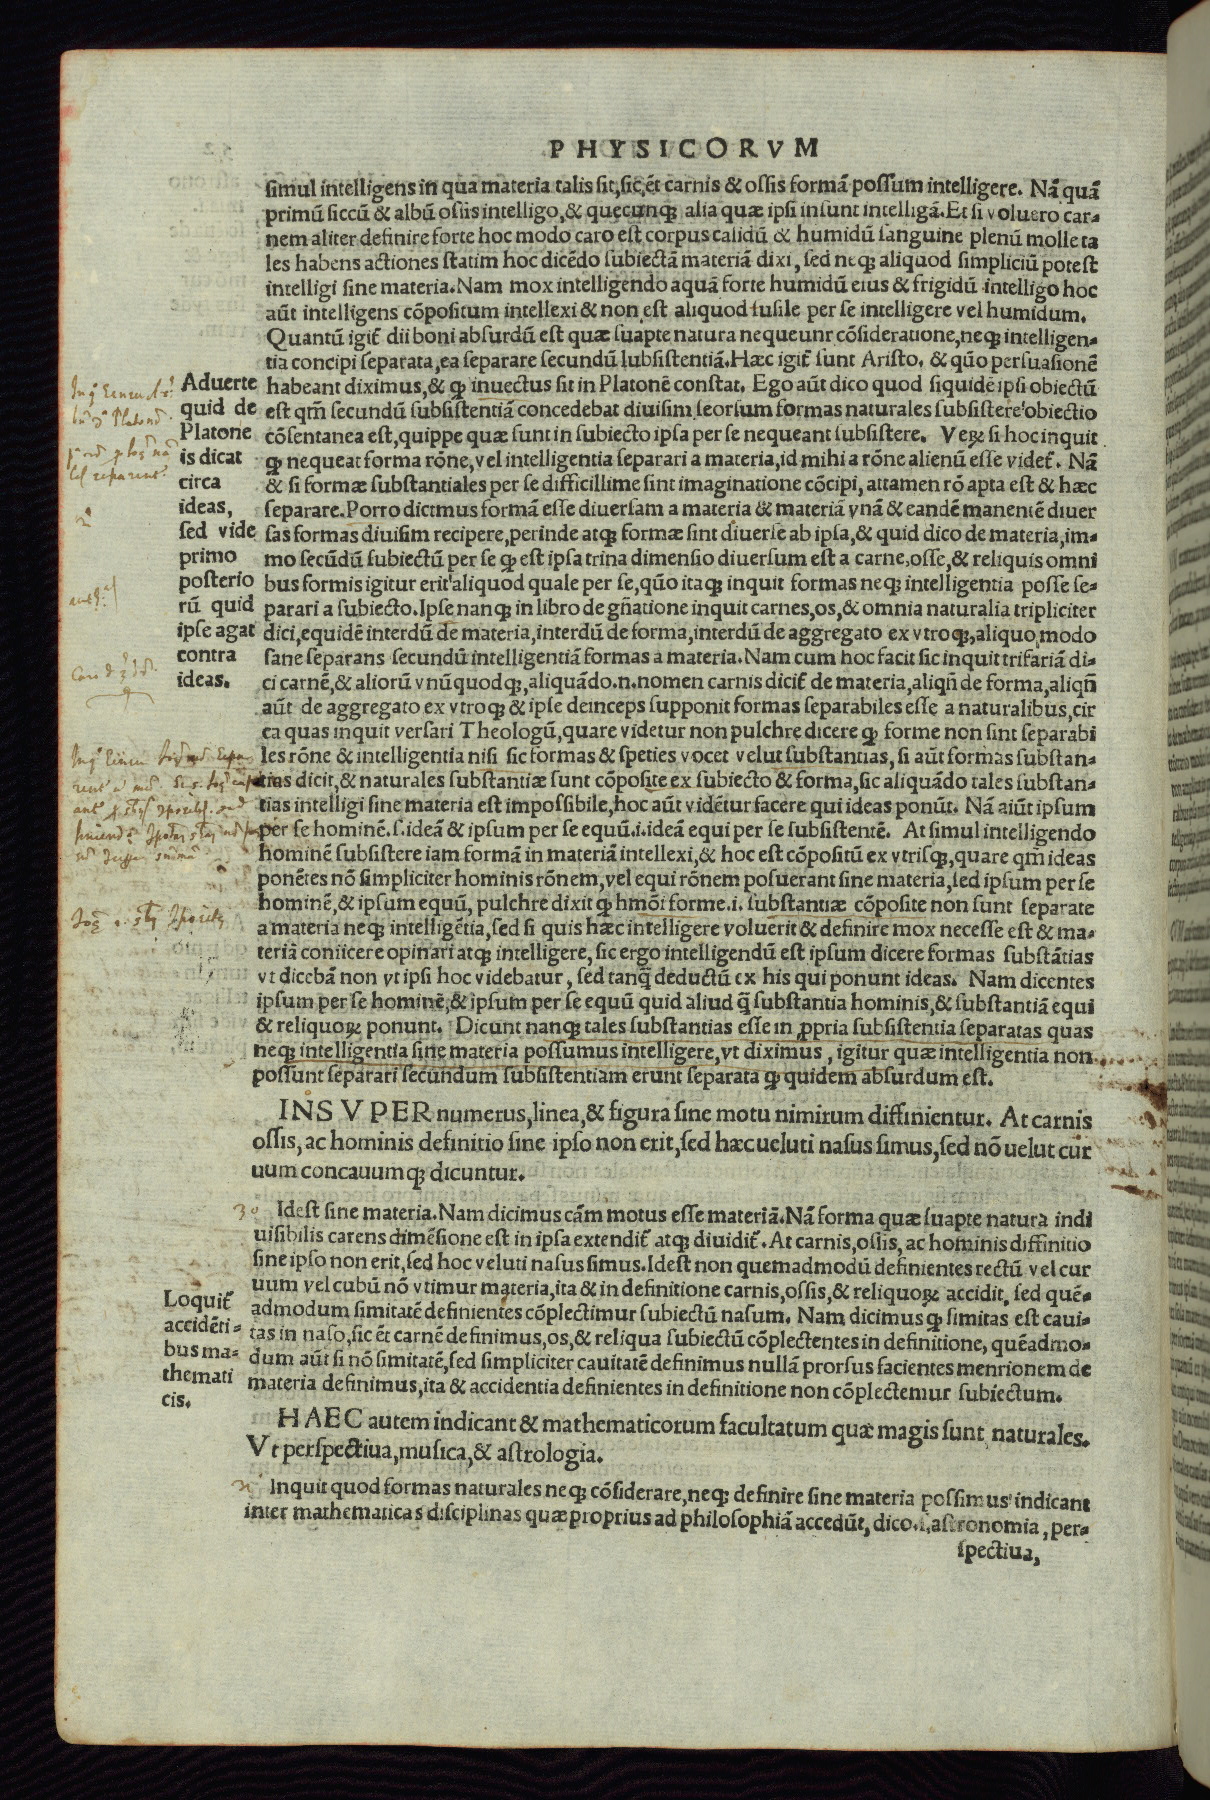 PHYSICORVM
simul intelligens in qua materia talis sit, sic, ẽt carnis & ossis formã possum intelligere. Nã quã
primũ siccũ & albũ ossis intelligo, & quęcunqꝫ alia quæ ipsi insunt intelligã. Et si voluero car-
nem aliter definire forte hoc modo caro est corpus calidũ & humidũ sanguine plenũ molle ta
les habens actiones statim hoc dicẽdo subiectã materiã dixi, sed neqꝫ aliquod simpliciũ potest
intelligi sine materia. Nam mox intelligendo aquã forte humidũ eius & frigidũ intelligo hoc
aũt intelligens cõpositum intellexi & non est aliquod fusile per se intelligere vel humidum.
Quantũ igit̃ dii boni absurdũ est quæ suapte natura nequeunr cõsideratione, neqꝫ intelligen-
tia concipi separata, ea separare secundũ lubsistentiã. Hæc igit̃ sunt Aristo. & qũo persuasionẽ
habeant diximus, & ꝙ inuectus sit in Platonẽ constat. Ego aũt dico quod siquidẽ ipsi obiectũ
est qm̃ secundũ subsistentiã concedebat diuisim seorsum formas naturales subsistere obiectio
cõsentanea est, quippe quæ sunt in subiecto ipsa per se nequeant subsistere. Veꝝ si hoc inquit
ꝙ nequeat forma rõne, vel intelligentia separari a materia, id mihi a rõne alienũ esse videt̃. Nã
& si formæ substantiales per se difficillime sint imaginatione cõcipi, attamen rõ apta est & hæc
separare. Porro dicimus formã esse diuersam a materia & materiã vnã & eandẽ manentẽ diuer
sas formas diuisim recipere, perinde atqꝫ formæ sint diuersę ab ipsa, & quid dico de materia, im-
mo secũdũ subiectũ per se ꝙ est ipsa trina dimensio diuersum est a carne, osse, & reliquis omni
bus formis igitur erit aliquod quale per se, qũo itaqꝫ inquit formas neqꝫ intelligentia posse se-
parari a subiecto. Ipse nanqꝫ in libro de gñatione inquit carnes, os, & omnia naturalia tripliciter
dici, equidẽ interdũ de materia, interdũ de forma, interdũ de aggregato ex vtroqꝫ, aliquo modo
sane separans secundũ intelligentiã formas a materia. Nam cum hoc facit sic inquit trifariã di-
ci carnẽ, & aliorũ vnũ quodqꝫ, aliquãdo.n. nomen carnis dicit̃ de materia, aliqñ de forma, aliqñ
aũt de aggregato ex vtroqꝫ & ipse deinceps supponit formas separabiles esse a naturalibus, cir
ca quas inquit versari Theologũ, quare videtur non pulchre dicere ꝙ forme non sint separabi
les rõne & intelligentia nisi sic formas & speties vocet velut substantias, si aũt formas substan-
tias dicit, & naturales substantiæ sunt cõposite ex subiecto & forma, sic aliquãdo tales substan-
tias intelligi sine materia est impossibile, hoc aũt vidẽtur facere qui ideas ponũt. Nã aiũt ipsum
per se hominẽ. s. ideã & ipsum per se equũ. i. ideã equi per se subsistentẽ. At simul intelligendo
hominẽ subsistere iam formã in materiã intellexi, & hoc est cõpositũ ex vtrisqꝫ, quare qm̃ ideas
ponẽtes nõ simpliciter hominis rõnem, vel equi rõnem posuerant sine materia, sed ipsum per se
hominẽ, & ipsum equũ, pulchre dixit ꝙ hmõi forme. i. substantiæ cõposite non sunt separate
a materia neqꝫ intelligẽtia, sed si quis hæc intelligere voluerit & definire mox necesse est & ma-
teriã coniicere opinari atqꝫ intelligere, sic ergo intelligendũ est ipsum dicere formas substãtias
vt dicebã non vt ipsi hoc videbatur, sed tanq̃ deductũ ex his qui ponunt ideas. Nam dicentes
ipsum per se hominẽ, & ipsum per se equũ quid aliud q̃ substantia hominis, & substantiã equi
& reliquoꝝ ponunt. Dicunt nanqꝫ tales substantias esse in ꝓpria subsistentia separatas quas
neqꝫ intelligentia sine materia possumus intelligere, vt diximus, igitur quæ intelligentia non
possunt separari secundum subsistentiam erunt separata ꝙ quidem absurdum est.
Aduerte
quid de
Platone
is dicat
circa
ideas,
sed vide
primo
posterio
rũ quid
ipse agat
contra
ideas.
INSVPER numerus, linea, & figura sine motu nimirum diffinientur. At carnis
ossis, ac hominis definitio sine ipso non erit, sed hæc ueluti nasus simus, sed nõ uelut cur
uum concauumqꝫ dicuntur.
30 Idest sine materia. Nam dicimus cãm motus esse materiã. Nã forma quæ suapte natura indi
uisibilis carens dimẽsione est in ipsa extendit̃ atqꝫ diuidit̃. At carnis, ossis, ac hominis diffinitio
sine ipso non erit, sed hoc veluti nasus simus. Idest non quemadmodũ definientes rectũ vel cur
uum vel cubũ nõ vtimur materia, ita & in definitione carnis, ossis, & reliquoꝝ accidit, sed quẽ-
admodum simitatẽ definientes cõplectimur subiectũ nasum. Nam dicimus ꝙ simitas est caui-
tas in naso, sic ẽt carnẽ definimus, os, & reliqua subiectũ cõplectentes in definitione, quẽadmo-
dum aũt si nõ simitatẽ, sed simpliciter cauitatẽ definimus nullã prorsus facientes menrionem de
materia definimus, ita & accidentia definientes in definitione non cõplectemur subiectum.
Loquit̃
accidẽti-
bus ma-
themati
cis.
HAEC autem indicant & mathematicorum facultatum quæ magis sunt naturales.
Vt perspectiua, musica, & astrologia.
Inquit quod formas naturales neqꝫ cõsiderare, neqꝫ definire sine materia possimus indicant
inter mathematicas disciplinas quæ proprius ad philosophiã accedũt, dico. s. astronomia, per-
spectiua,